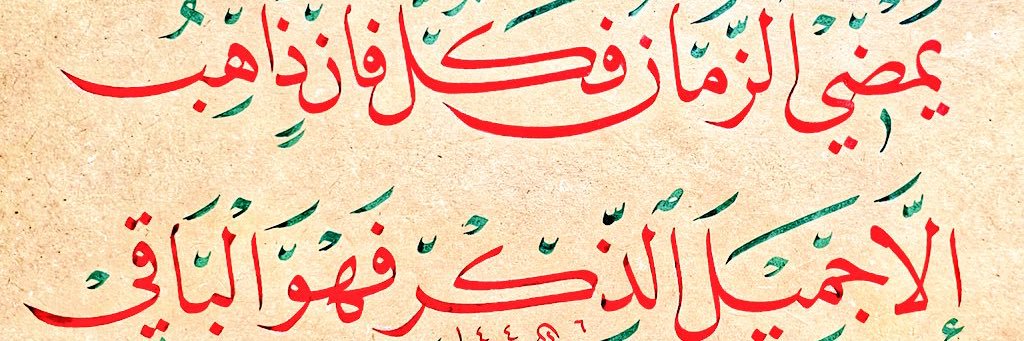 يمضي الزمان فكل فان ذاهب
إلا جميل الذكر فهو الباقي